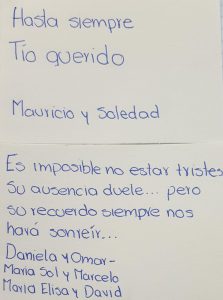 Hasta siempre
Tío querido
Mauricio y Soledad
Es imposible no estar tristes
Su ausencia duele... pero
su recuerdo siempre nos
hará sonreír...
Daniela y Omar-
Maria Sol y Marcelo
Maria Elisa y David